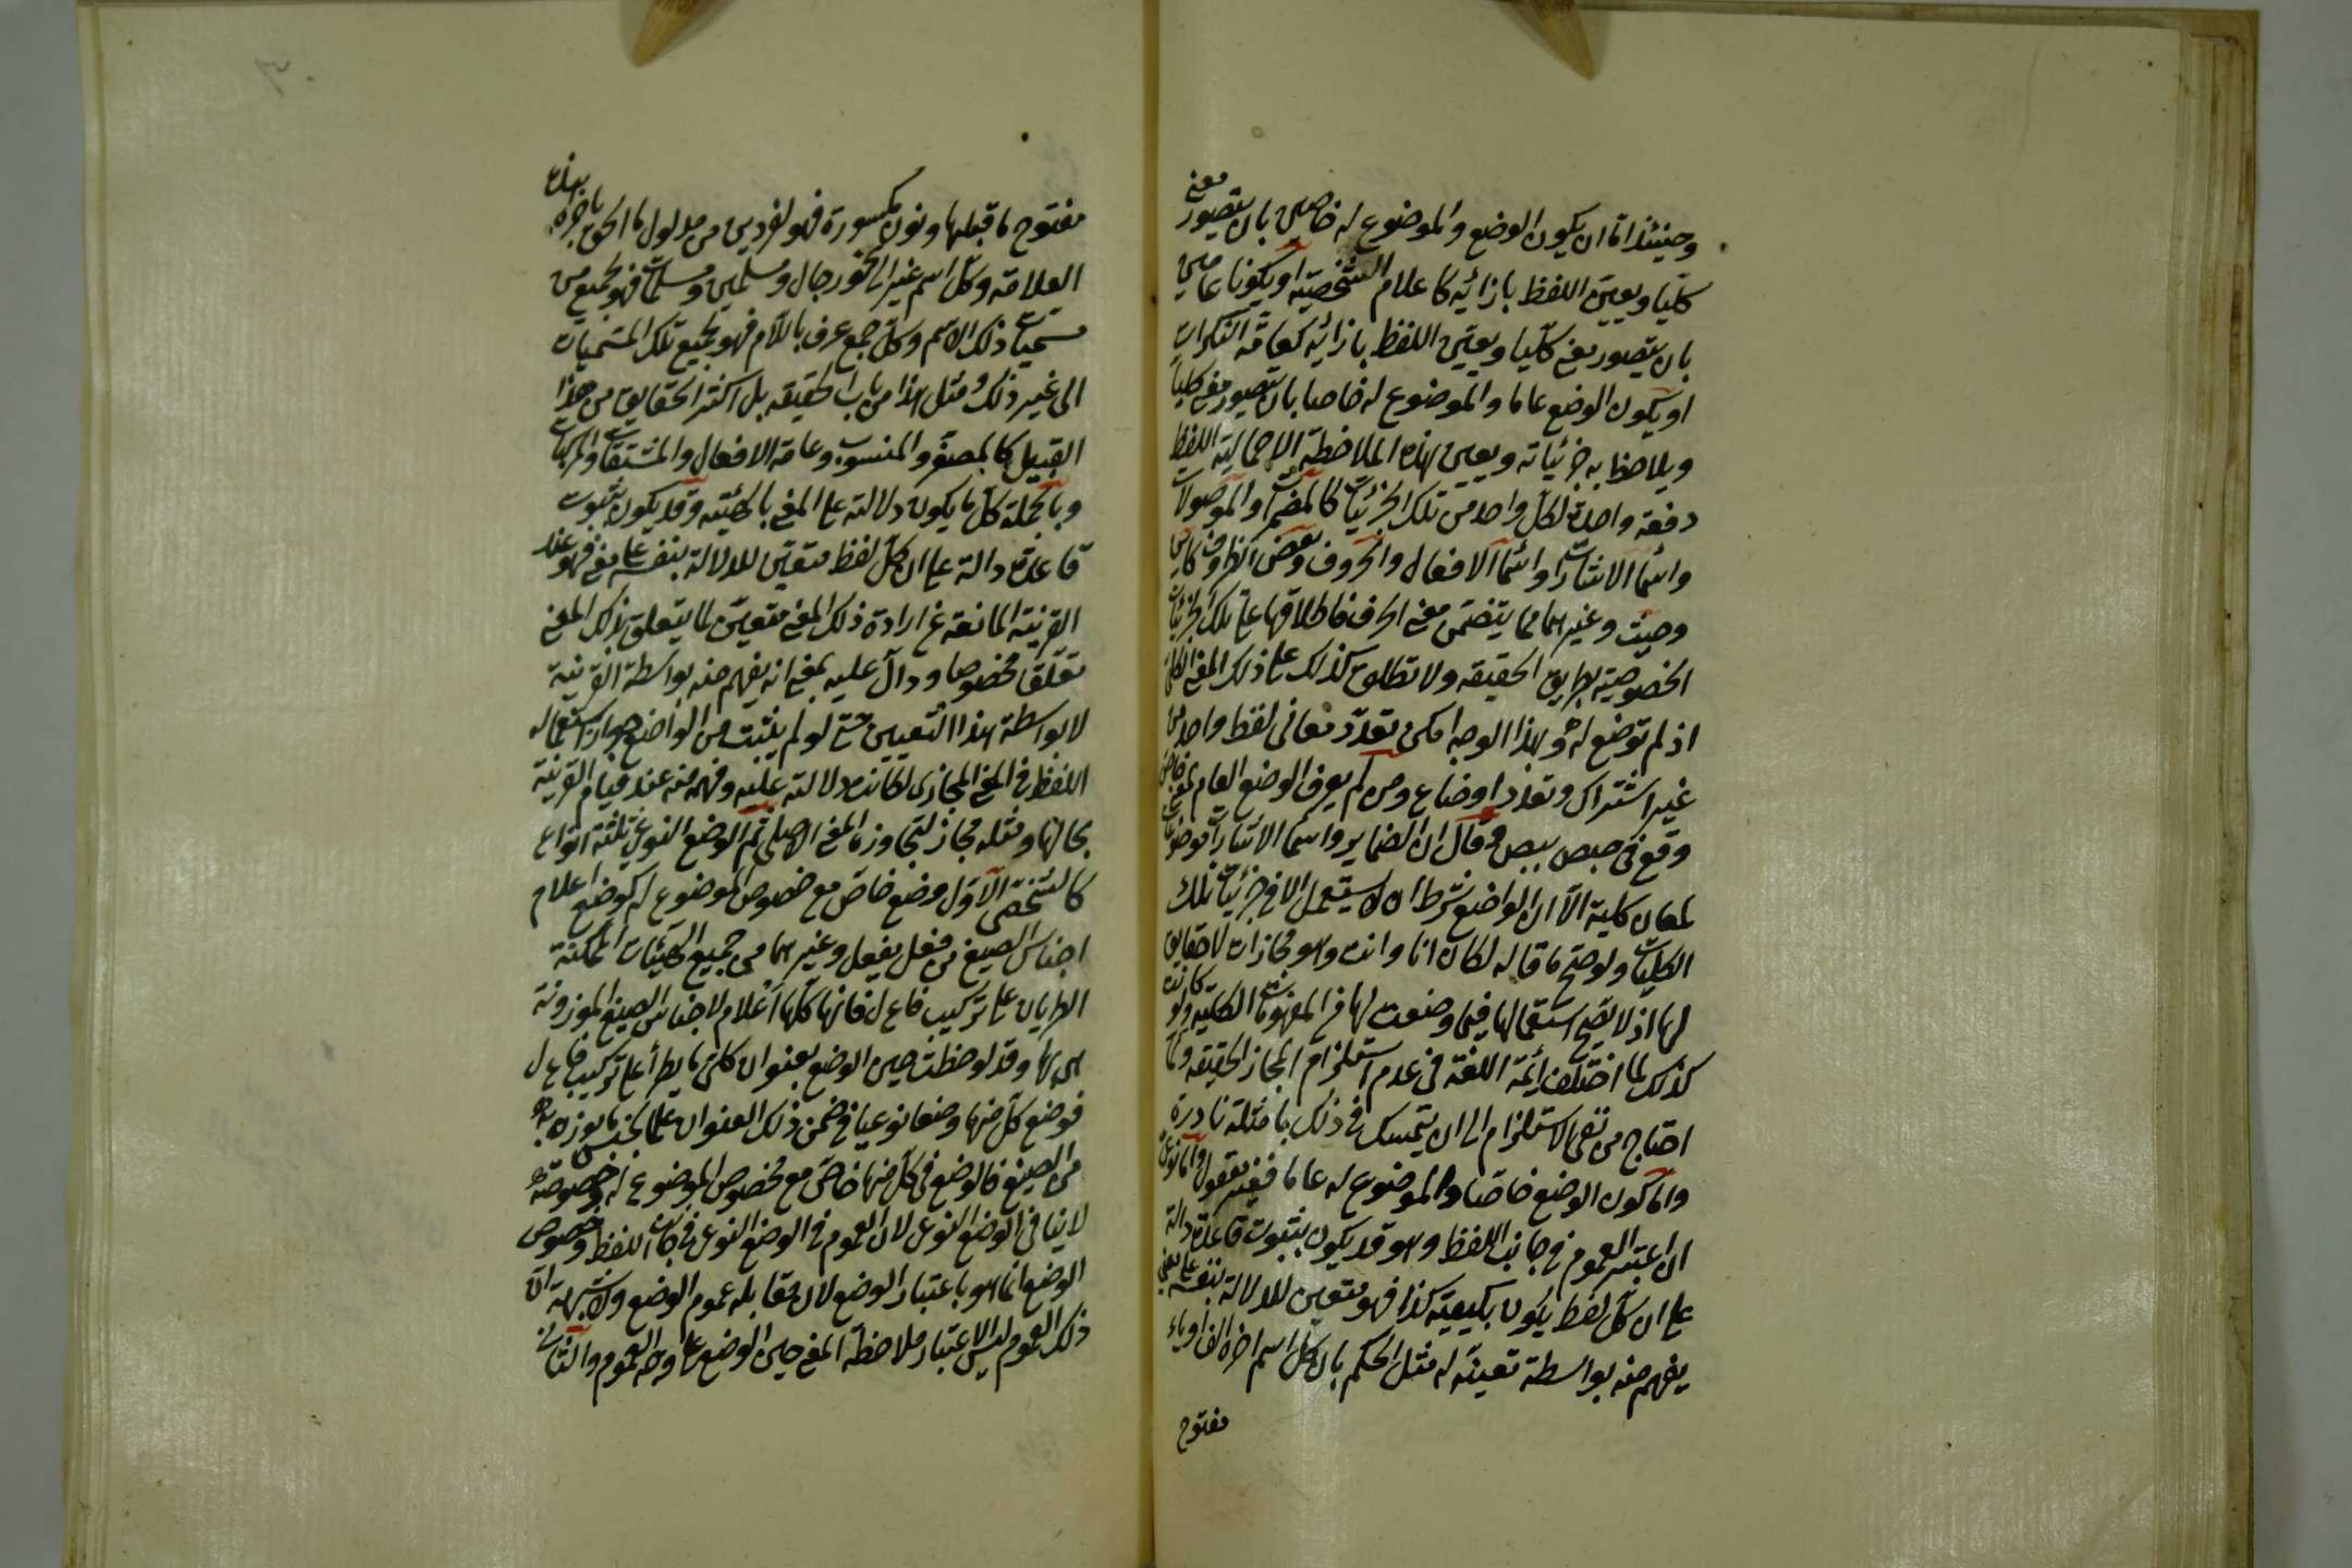 وحينئذ اما ان يكون الوضع والموضوع له خاصين بان يتصور معنى
كليا ويعين اللفظ بازائه كاعلام الشخصية او يكونا عامين
بان يتصور معنى كليا ويعين اللفظ بازائه كعامة النكرات
او يكون الوضع عاما والموضوع له خاصا بان يتصور معنى كليا
ويلاحظ به جزئياته ويعين بهذه الملاحظة الاجمالية اللفظ
دفعة واحدة لكل واحد من تلك الجزئيات كالمضمرات والموصولات
واسما الاشارات واسما الافعال والحروف وبعض الظروف كاين
وحيث وغيرهما مما يتضمن معنى الحرف فاطلاقها على تلك الجزئيات
الخصوصية بطريق الحقيقة ولا تطلق كذلك على ذلك المعنى الكلي
اذ لم توضع له وبهذا الوجه امكن تعدد معانى لفظ واحد من
غير اشتراك وتعدد اوضاع ومن لم يعرف الوضع العام لمعنى خاص
وقع في حيص بيص وقال ان الضماير واسما الاشارات موضوعات
لمعان كلية الا ان الواضع شرط ان لا يستعمل الا في جزئيات تلك
الكليات ولو صح ما قاله لكان انا وانت وهو مجازات لا حقايق
لها اذ لا يصح استعمالها فيما وضعت لها في المفهومات الكلية ولو كانت
كذلك لما اختلف ائمة اللغة في عدم استلزام المجاز الحقيقة ولما
احتاج من نفى الاستلزام الى ان يتمسك في ذلك بامثلة نادرة
واما كون الوضع خاصا والموضوع له عاما فغير معقول واما نوعى
ان اعتبر العموم في جانب اللفظ وهو قد يكون بثبوت قاعدة دالة
على ان كل لفظ يكون بكيفية كذا فهو متعين للدلالة بنفسه على معنى
يفهم منه بواسطة تعينه له مثل الحكم بان كل اسم اخره الف او ياء
مفتوح
مفتوح ما قبلها ونون مكسورة فهو لفردين من مدلول ما الحق باخره بهذه
العلامة وكل اسم غير الى نحو رجال ومسلمين ومسلمات فهو لجميع من
مسميات ذلك الاسم وكل جمع عرف باللام فهو لجميع تلك المسميات
الى غير ذلك ومثل هذا من باب الحقيقة بل اكثر الحقايق من هذا
القبيل كالمصغر والمنسوب وعامة الافعال والمشتقات والمركبات
وبالجملة كل ما يكون دلالته على المعنى بالهيئة وقد يكون بثبوت
قاعدة دالة على ان كل لفظ متعين للدلالة بنفسه على معنى فهو عند
القرينة المانعة عن ارادة ذلك المعنى متعين لما يتعلق بذلك المعنى
تعلقا مخصوصا ودال عليه بمعنى انه يفهم منه بواسطة القرينة
لا بواسطة هذا التعيين حتى لو لم يثبت من الواضع جواز استعمال
اللفظ في المعنى المجازى لكانت دلالته عليه وفهمه منه عند قيام القرينة
بحالها ومثله مجاز لتجاوزه المعنى الاصلى ثم الوضع النوعى ثلثة انواع
كالشخصى الاول وضع خاص مع خصوص الموضوع له كوضع اعلام
اجناس الصيغ من فعل يفعل وغيرهما من جميع الهيئات الممكنة
الطريان على تركيب فاعل فانها كلها اعلام لاجناس الصيغ الموزونة
بها وقد لوحظت حين الوضع بعنوان كلى ما يطرأ على تركيب ف ا ع ل
فوضع كل منها وضعا نوعيا في ضمن ذلك العنوان علما لجنس ما يوزن به
من الصيغ فالوضع في كل منها خاص مع خصوص الموضوع له وخصوصه
لا ينافى الوضع النوعى لان العموم في الوضع النوعى في جانب اللفظ وخصوص
الوضع انما هو باعتبار الوضع لان مقابله عموم الوضع ولا شبهة ان
ذلك العموم ليس الا عتبار ملاحظة المعنى حين الوضع على وجه العموم والثانى